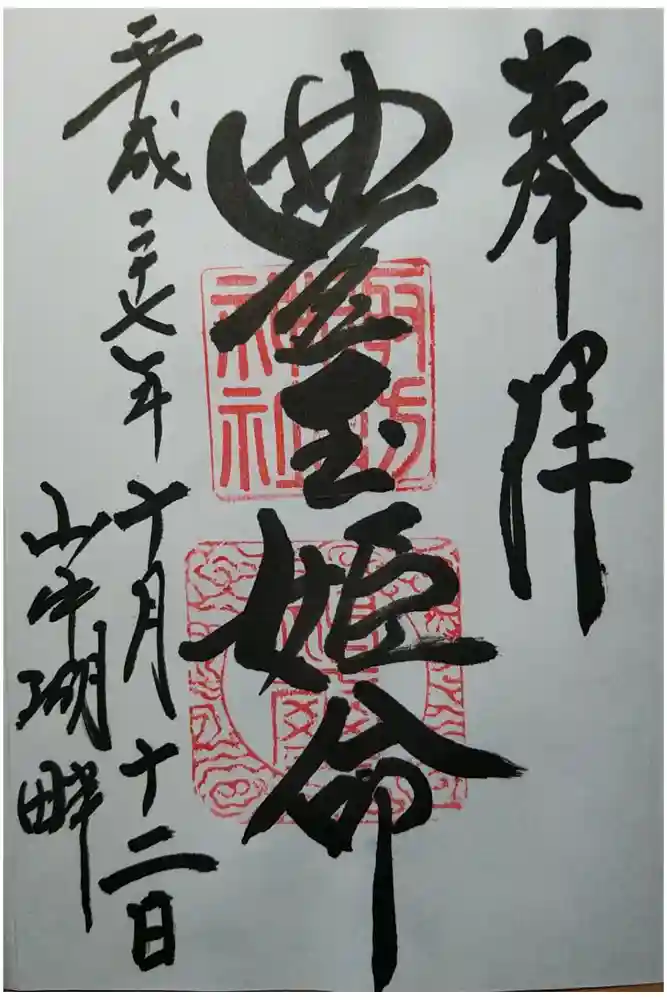 奉拝
豊玉姫命
諏訪神社
平成二十七年十月十二日
山中湖畔